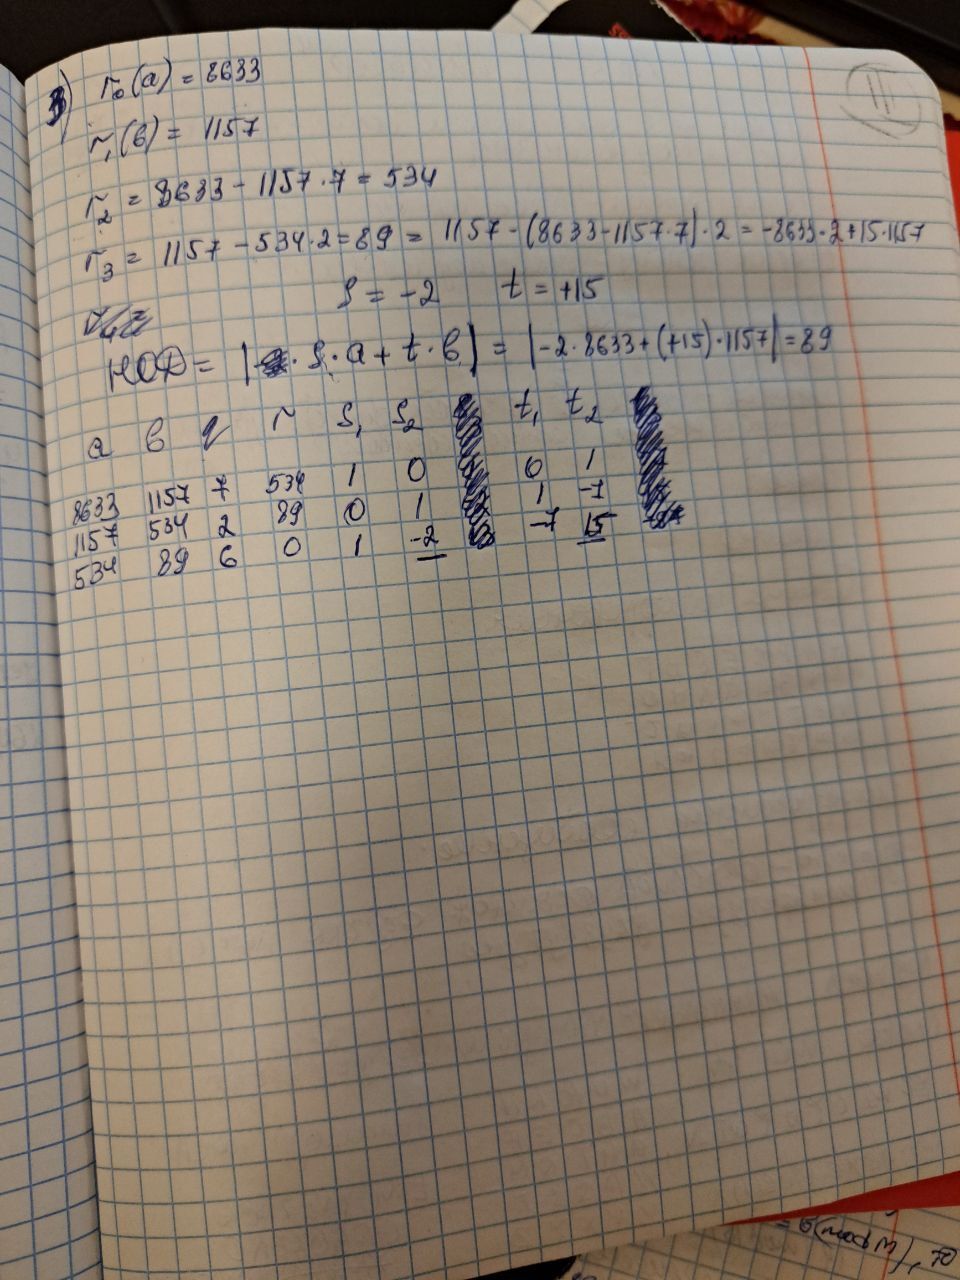 3) r₀(a) = 8633
r₁(b) = 1157
r₂ = 8633 - 1157·7 = 534
r₃ = 1157 - 534·2 = 89 = 1157 - (8633 - 1157·7)·2 = -8633·2 + 15·1157
S = -2 t = +15
НОД = |· S·a + t·b| = |-2·8633 + (+15)·1157| = 89
a b q r S₁ S₂ t₁ t₂
8633 1157 7 534 1 0 0 1
1157 534 2 89 0 1 1 -7
534 89 6 0 1 -2 -7 15
= 6(mod 11), 70